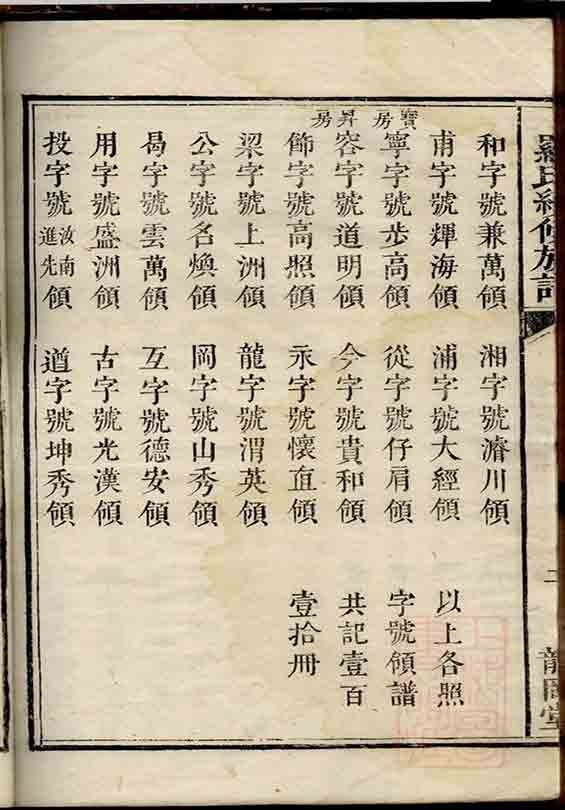 羅氏續修族譜
二
龍岡堂
和字號兼萬領
湘字號濬川領
甫字號輝海領
浦字號大經領
以上各照
寶房
寧字號步高領
從字號仔肩領
字號領譜
昇房
容字號道明領
今字號貴和領
共記壹百
飾字號高照領
永字號懷直領
壹拾冊
梁字號上洲領
龍字號渭英領
公字號名煥領
岡字號山秀領
曷字號雲萬領
互字號德安領
用字號盛洲領
古字號光漢領
投字號汝南進先領
遒字號坤秀領